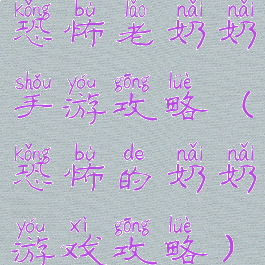 kǒng bù lǎo nǎi nǎi
恐怖老奶奶
shǒu yóu gōng lüè
手游攻略（
kǒng bù de nǎi nǎi
恐怖的奶奶
yóu xì gōng lüè
游戏攻略）